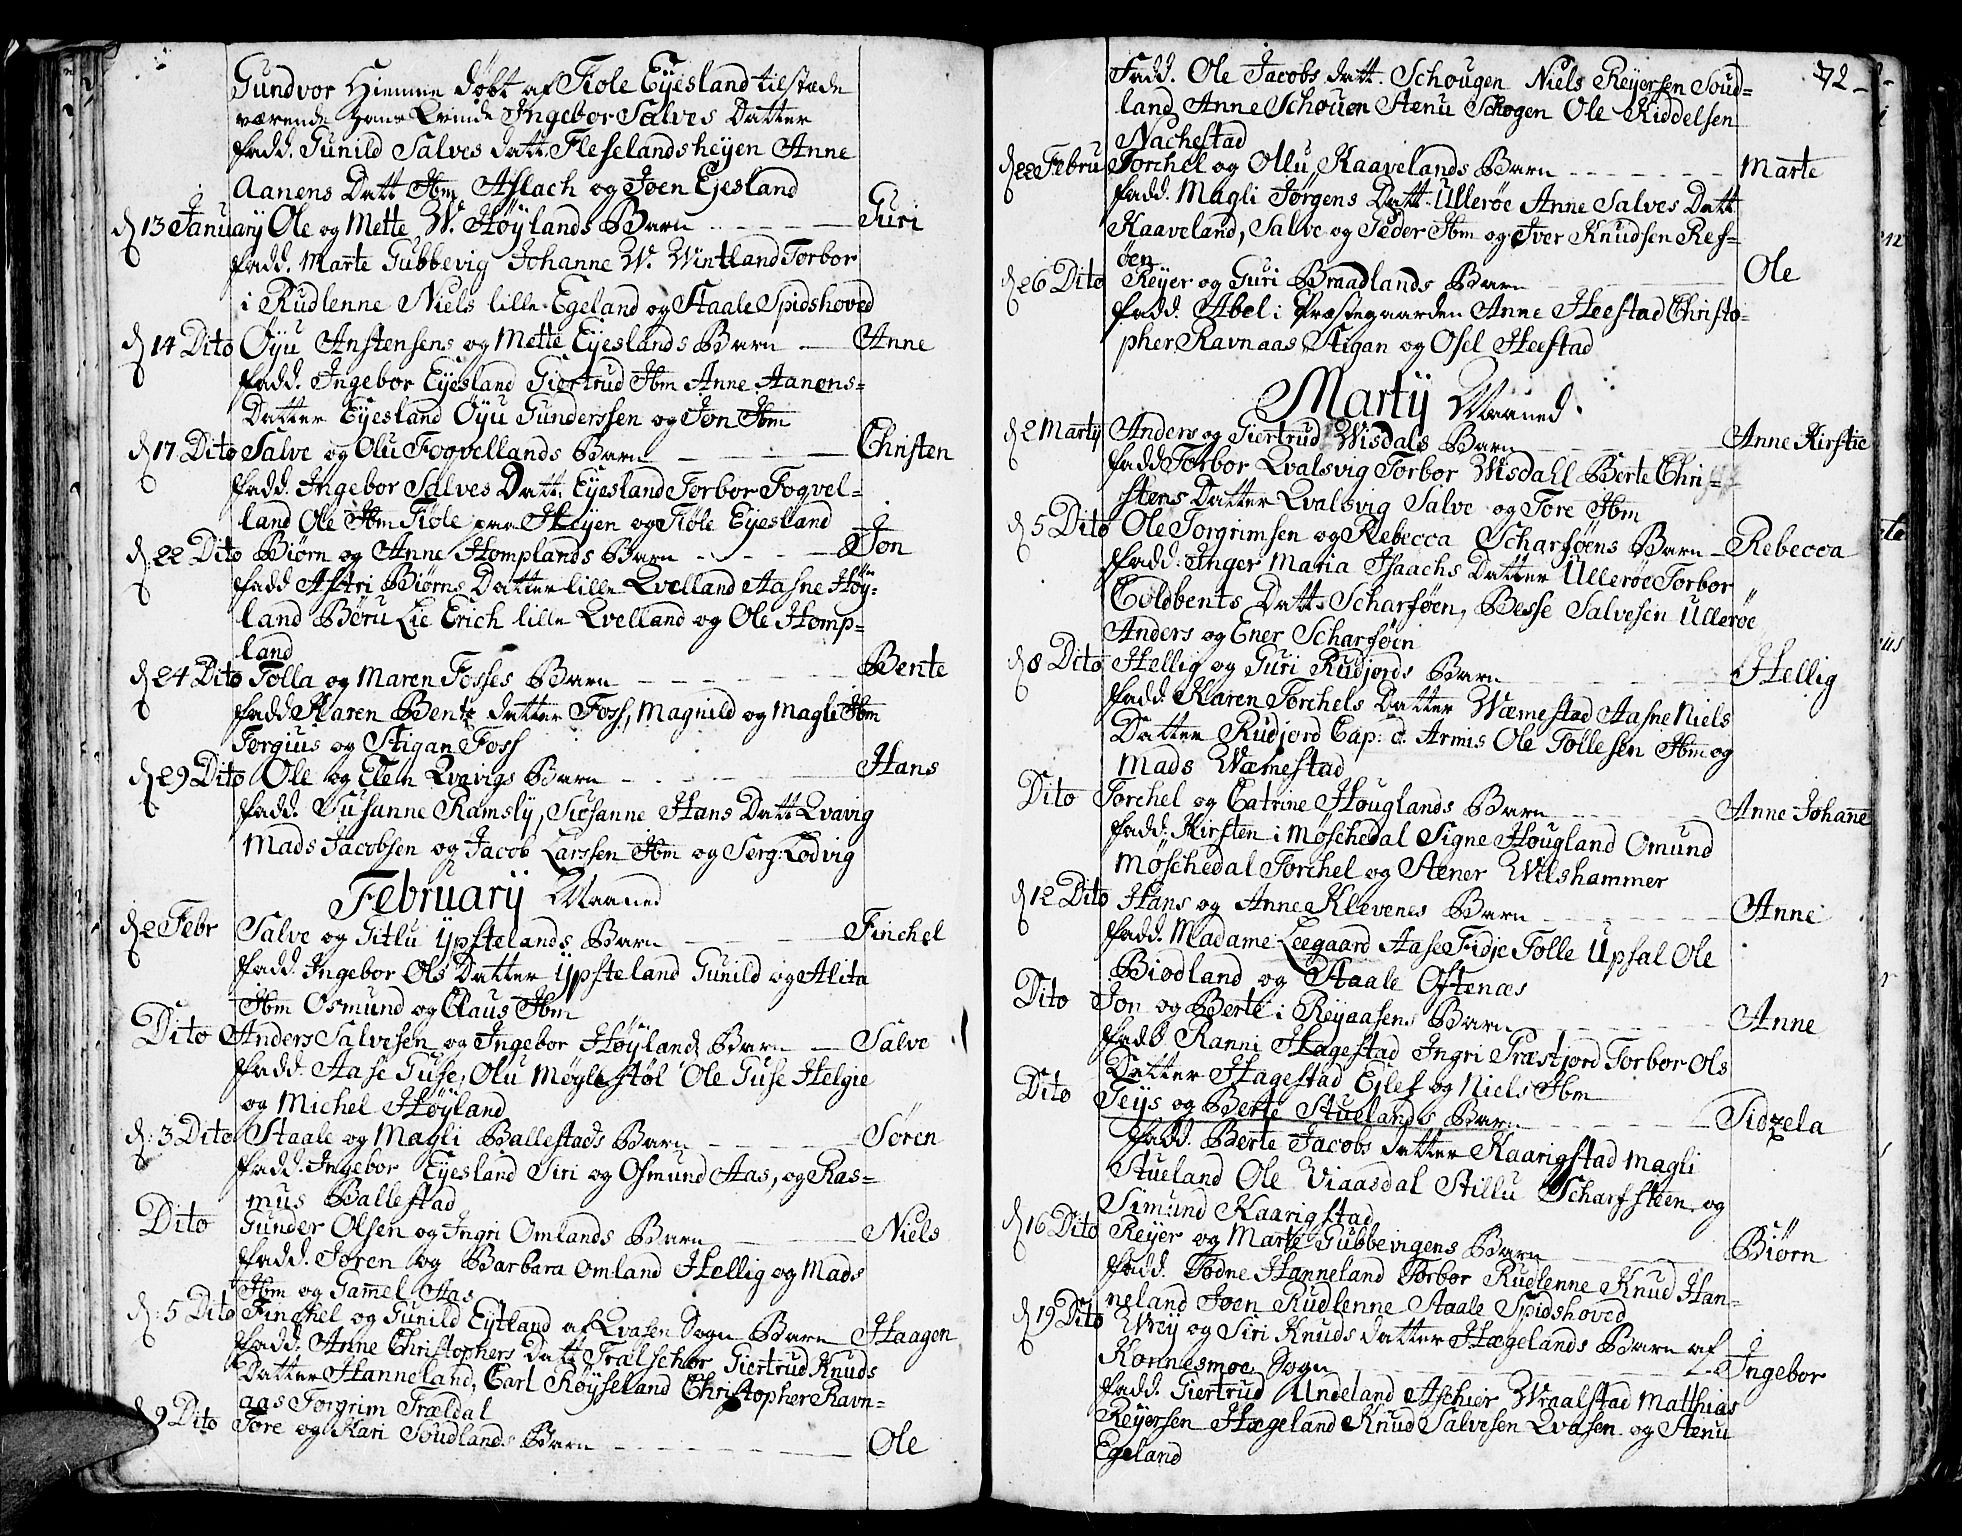 Gundvor Hiemme døbt af Tiole Eyesland tilstæde
værende hans Qvinde Ingebor Salves Datter
fadd. Gunild Salves datt. Flesselandsheyen Anne
Aanens Datt Ibm Aslach og Joen Eyesland
d 13 January Ole og Mette W. Høylands Barn Guri
fadd. Marte Gubbevig Johanne W. Wintland Torbor
i Rudlenne Niels lille Egeland og Staale Spidshoved
d 14 Dito Øyu Anstensens og Mette Eyeslands Barn Anne
fadd. Ingebor Eyesland Giertrud Ibm Anne Aanens=
Datter Eyesland Øyu Gunderssen og Jon Ibm
d 17 Dito Salve og Olu Fogvellands Barn Christen
fadd. Ingebor Salves Datt. Eyesland Torbor Fogvel=
land Ole Ibm Tiole paa Heyen og Tiole Eyesland
d. 22 Dito Biørn og Anne Homplands Barn Jon
fadd Astri Biørns Datter lille Qvelland Aasne Høy=
land Børu Lie Erich lille Qvelland og Ole Homp=
land
d 24 Dito Tolla og Maren Fosses Barn Bente
fadd Karen Bents datter Foss, Magnild og Magli Ibm
Torgius og Stigan Foss
d 29 Dito Ole og Elen Qvavigs Barn Hans
fadd. Susanne Ramsly, Susanne Hans Datt Qvavig
Mads Jacobsen og Jacob Larssen Ibm og Serg: Lodvig
February Maaned
d 2 Febr Salve og Gitlu Ypstelands Barn Finchel
fadd. Ingebor Ols Datter Ypsteland Gunild og Alita
Ibm Osmund og Claus Ibm
Dito Anders Salvesen og Ingebor Høylands Barn Salve
fadd. Aase Guse, Olu Møglestøl Ole Guse Helgie
og Michel Høyland
d: 3 Dito Staale og Magli Ballestads Barn Søren
fadd. Ingebor Eyesland Siri og Osmund Aas, og Ras=
mus Ballestad
Dito Gunder Olsen og Ingri Omlands Barn Niels
fadd. Søren og Barbara Omland Hellig og Mads
Ibm og Gamel Aas
d: 5 Dito Finchel og Gunild Eytland af Qvasen Sogn Barn Haagen
fadd. Anne Christophers Datt Trælschor Giertrud Knuds
Datter Hanneland, Carl Røyseland Christopher Ravn=
aas Torgrim Trældal
d 9 Dito Tore og Kari Soudlands Barn Ole
72
Fadd. Ole Jacobs datt. Schougen Niels Reyersen Soud=
land Anne Schouen Stenu Skogen Ole Kiddelsen
Nachestad
d 22 Febru Torchel og Ollu Kaavelands Barn Marte
fadd. Magli Jørgens Datt. Ullerøe Anne Salves Datt
Kaaveland, Salve og Peder Ibm og Iver Knudsen Ref=
øen
d 26 Dito Reyer og Guri Braadlands Barn Ole
fadd. Abel i Præstegaarden Anne Heestad Christo=
pher Ravnaas Stigan og Osel Heestad
Martij Maaned
d 2 Martij Anders og Giertrud Wisdals Barn Anne Kirstie
fadd Torbor Qvalsvig Torbor Wisdahl Berte Chri=
stens Datter Qvalsvig Salve og Tore Ibm
d 5 Dito Ole Torgrimsen og Rebecca Scharføens Barn Rebecca
fadd. Inger Maria Isaachs Datter Ullerøe Torbor
Coldbents Datt. Scharføen, Besse Salvesen Ullerøe
Anders og Ener Scharføen
d 8 Dito Hellig og Guri Rudjords Barn Hellig
fadd. Karen Torchels Datter Wæmestad Aasne Niels
Datter Rudjord Cap: d: Armis Ole Tollesen Ibm og
Mads Wæmestad
Dito Torchel og Catrine Houglands Barn Anne Johane
fadd: Kirsten i Møschedal Signe Hougland Omund
Møschedal Torchel og Stener Wilshammer
d 12 Dito Hans og Anne Klevenes Barn Anne
fadd. Madame Leegaard Aase Fidje Tolle Upsal Ole
Biødland og Staale Oftenæs
Dito Jon og Berte i Reyaasens Barn Anne
fadd. Ranni Hagestad Ingri Præstjord Torbor Ols
Datter Hagestad Ejlef og Niels Ibm
Dito Seys og Berte Stuelands Barn Sidzela
fadd. Berte Jacobs datter Kaarigstad Magli
Stueland Ole Viaasdal Stillu Scharfsteen og
Simund Kaarigstad
d 16 Dito Reyer og Marte Gubbevigens Barn Biørn
fadd. Todne Hanneland Torbor Rudlenne Knud Han=
neland Joen Rudlenne Staale Spidshoved
d 19 Dito Wrey og Siri Knuds datter Hægelands Barn af
Konnesmoe Sogn Ingebor
fadd. Giertrud Undeland Aschier Wraalstad Matthias
Reyersen Hægeland Knud Salvesen Qvasen og Stenu
Egeland